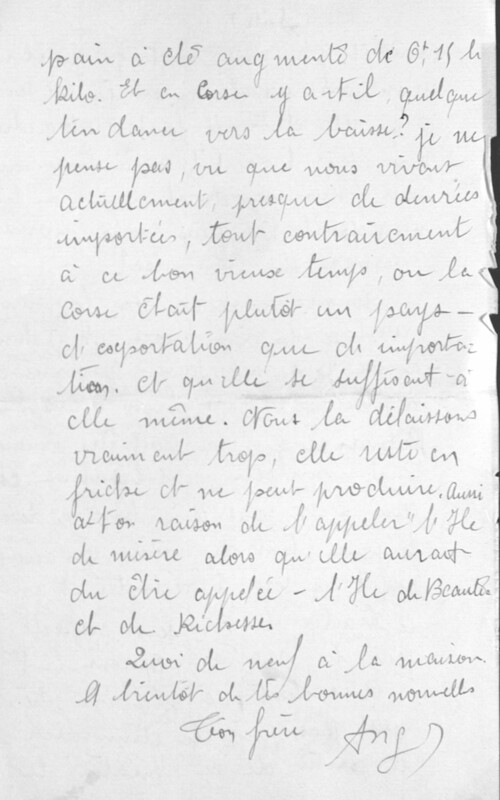 pain à été augmenté de 0f,15 le
kilo. Et en Corse y a t il, quelque
tendance vers la baisse? je ne
pense pas, vu que nous vivons
actuellement, presque de denrées
importées, tout contrairement
à ce bon vieux temps, ou la
Corse était plutôt un pays –
d'exportation que de importa-
tion. et quelle se suffisait à
elle même. Nous la délaissons
vraiment trop, elle reste en
friche et ne peut produire. Aussi
a-t'on raison de l'appeler "l'Ile
de misère alors qu'elle aurait
du être appelée – l'Ile de Beauté
et de Richesse
Quoi de neuf à la maison.
A bientot de tes bonnes nouvelles
Ton frère